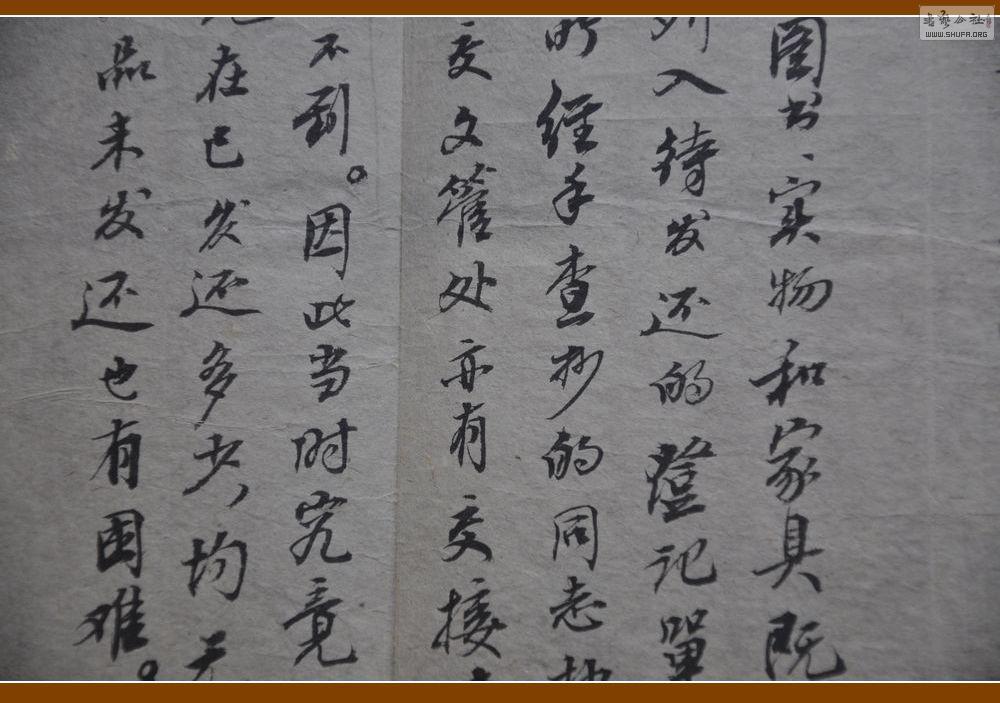 图书、实物和家具既
列入待发还的登记單
所经手查抄的同志
交文管处亦有交接
不到。因此当时究竟
在已发还多少,均无
品未发还也有困难。
书艺公社
WWW.SHUFA.ORG